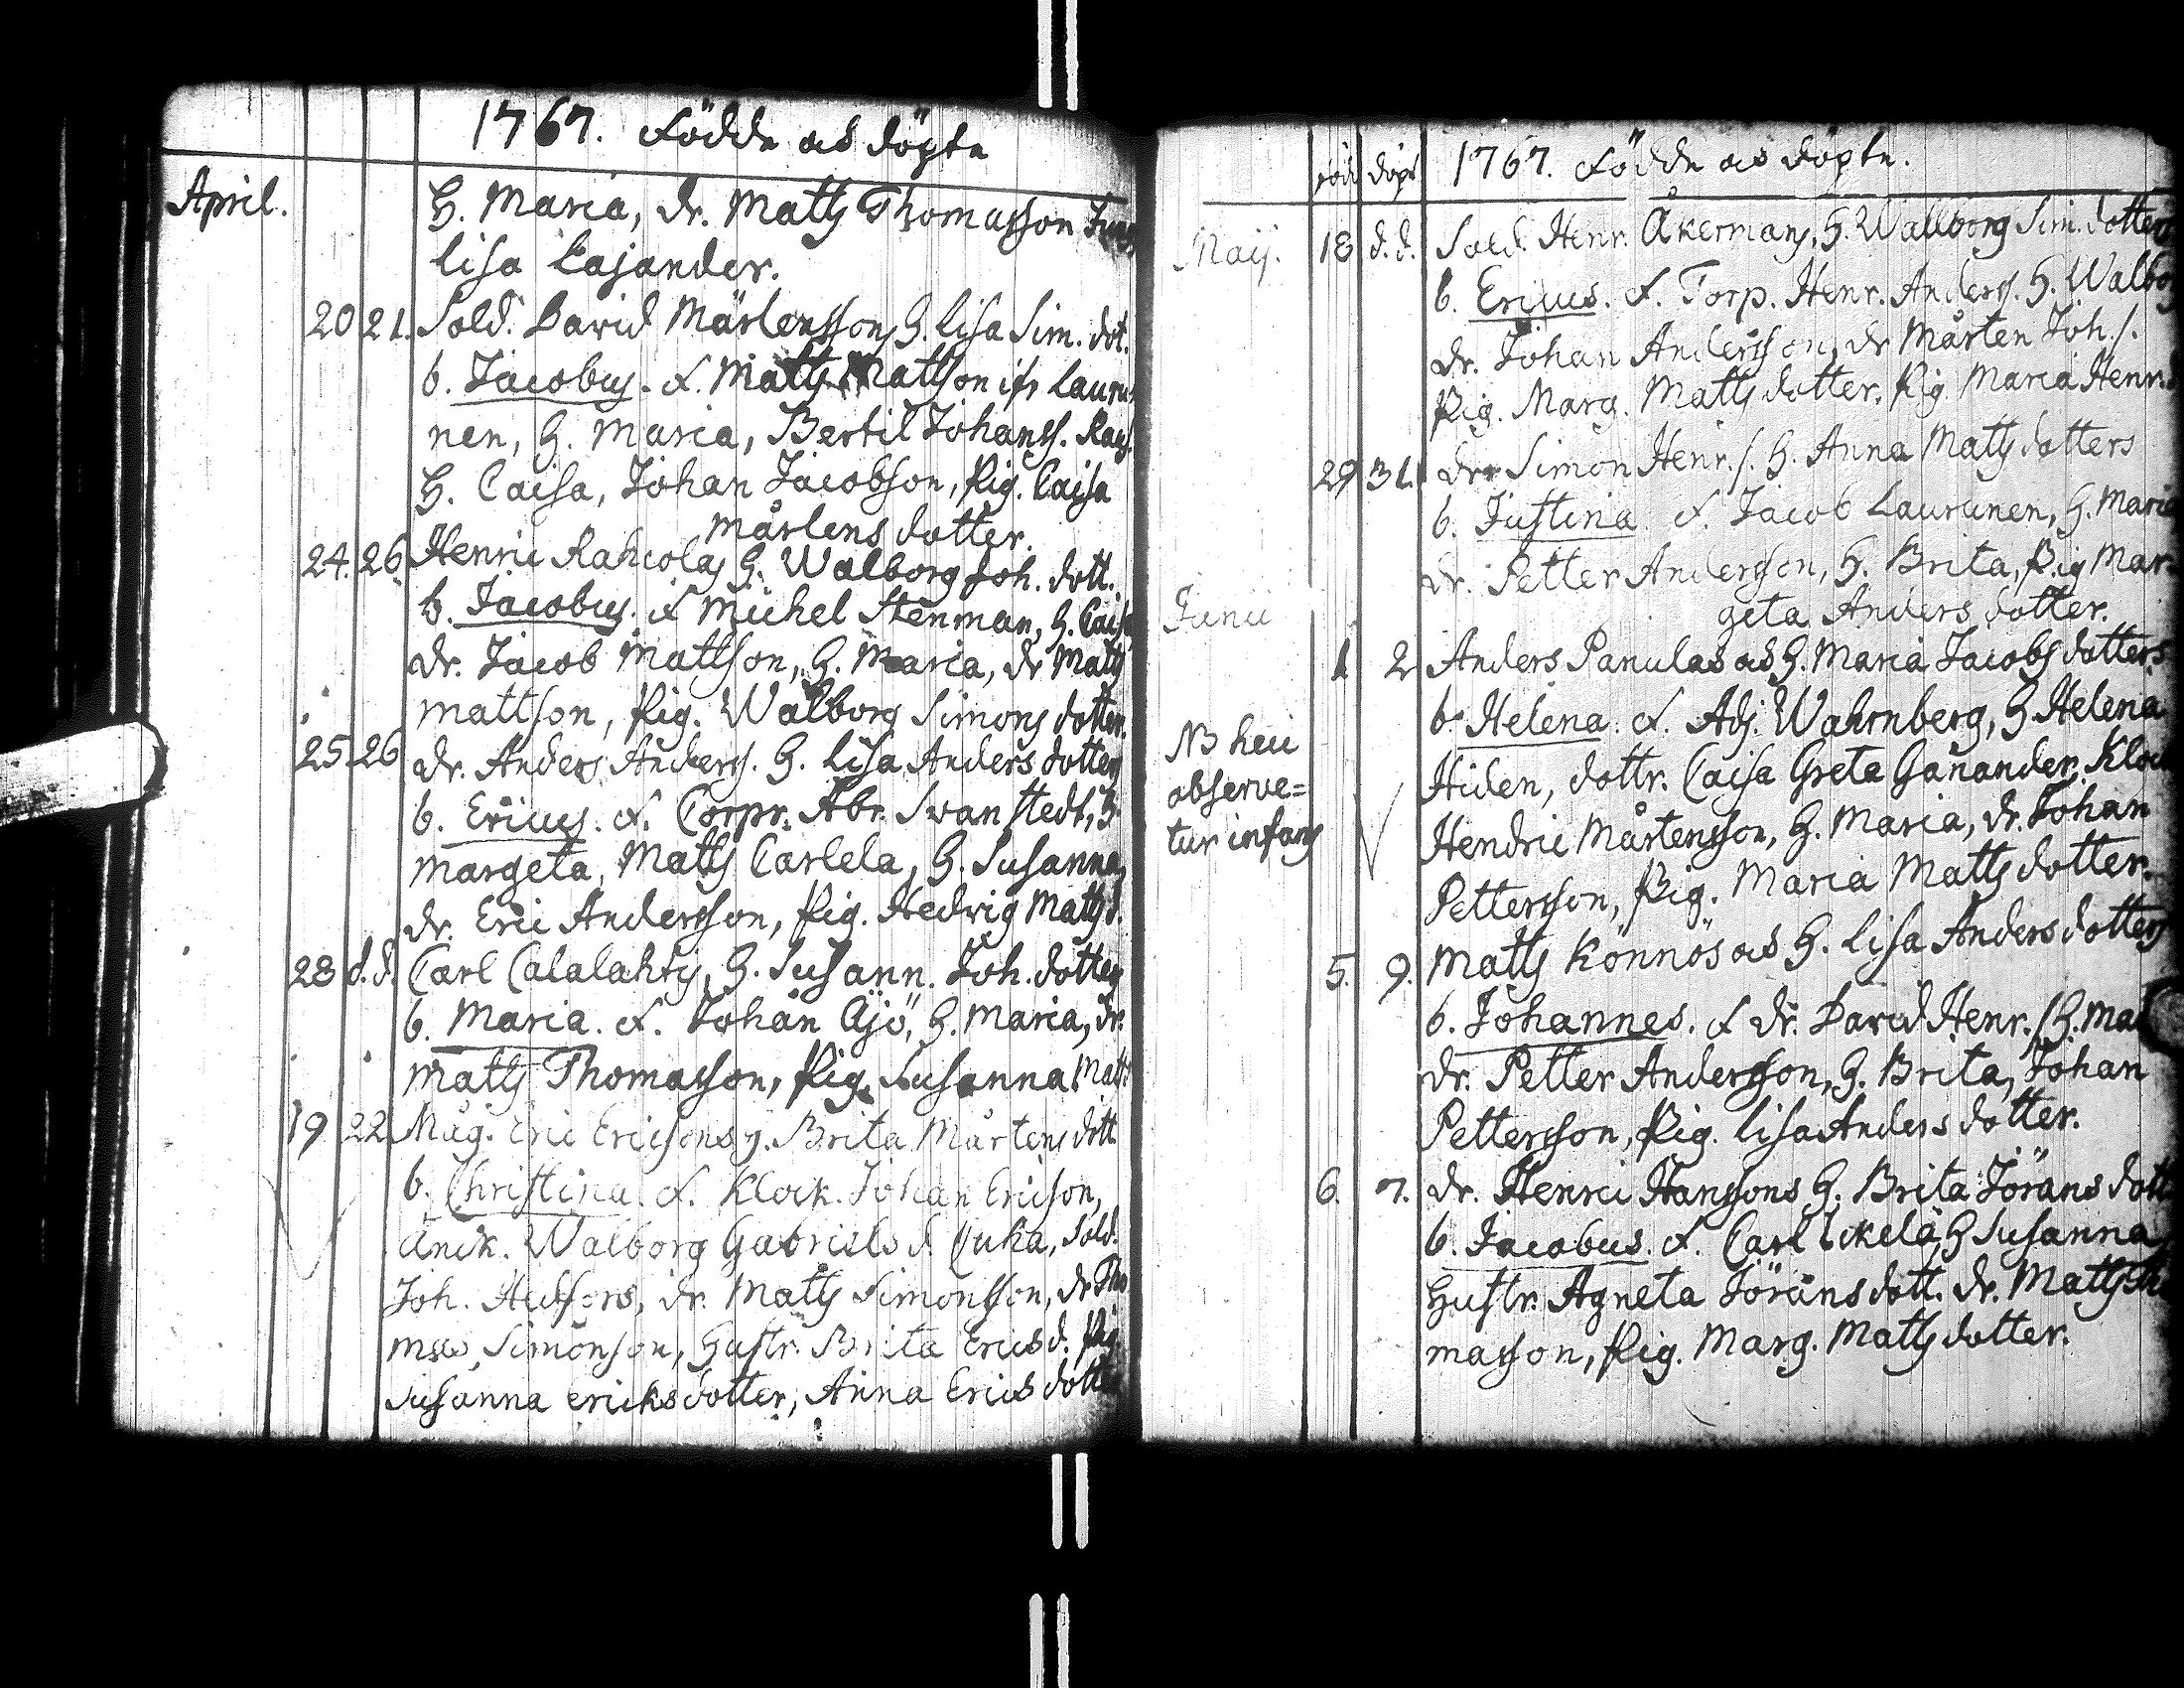 1767. Födde och döpte
April.
H. Maria, dr. Matts Thomasson
Lisa Cajander.
20 21. Sold. David Mårtenssons H. Lisa Sim. dot.
b. Jacobus. f. Matts Mattson ifr Lauru-
nen, H. Maria, Bertil Johanss.
H. Caisa, Johan Jacobson, Pig. Caisa
Mårtens dotter.
24. 26. Henric Rahcolas H. Walborg Joh. dott.
b. Jacobus. f. Michel Stenman, H. Caisa
dr. Jacob Mattson, H. Maria, dr Matts
Mattson, Pig. Walborg Simons dotter.
25 26 dr. Anders Anderss. H. Lisa Anders dotters
b. Ericus. f. Corpr. Abr. Swanstedt, H.
Margeta, Matts Carlela, H. Susanna,
dr. Eric Andersson, Pig. Hedvig Matts d.
28 d.d. Carl Calalahtis, H. Susann. Joh. dotters
b. Maria. f. Johan Äjö, H. Maria, dr.
Matts Thomasson, Pig. Susanna Matt
19 22 Måg. Eric Ericsons H. Brita Mårtens dott
b. Christina. f. Klock. Johan Ericson,
Änck. Walborg Gabriels d. Sold.
Joh. dr. Matts Simonsson, dr Tho
mas Simonson, Hustr. Brita Erics d. Pig.
Susanna eriks dotter, Anna Erics dott
född döpt 1767. Födde och döpte.
Maij. 18 d.d. Sold. Henr. Åkermans, H. Wallborg Sim. dotters
b. Ericus. f. Torp. Henr. Anderss. H. Walborg
dr. Johan Andersson, dr Mårten Joh. s.
Pig. Marg. Matts dotter, Pig. Maria Henr.
29 31. dr Simon Henr. s. H. Anna Matts dotters
b. Justina. f. Jacob Laurunen, H. Maria
dr. Petter Andersson, H. Brita, Pig Mar-
geta Anders dotter.
Junii
1 2 Anders Panulas och H. Maria Jacobs dotters
b. Helena. f. Adj. Wahrnberg, H Helena
NB heic
observe=
tur infans
Hiden, dottr. Caisa Greta Ganander, Klock
Hendric Mårtensson, H. Maria, dr. Johan
Pettersson, Pig. Maria Matts dotter.
5. 9. Matts Könnös och H. Lisa Anders dotters
b. Johannes. f. dr. David Henr. s H. Mar
dr. Petter Andersson, H. Brita, Johan
Pettersson, Pig. Lisa Anders dotter.
6. 7. dr. Henric Hanssons H. Brita Jörans dott
b. Jacobus. f. Carl H Susanna
Hustr. Agneta Jörans dott. dr. Matts Tho
masson, Pig. Marg. Matts dotter.